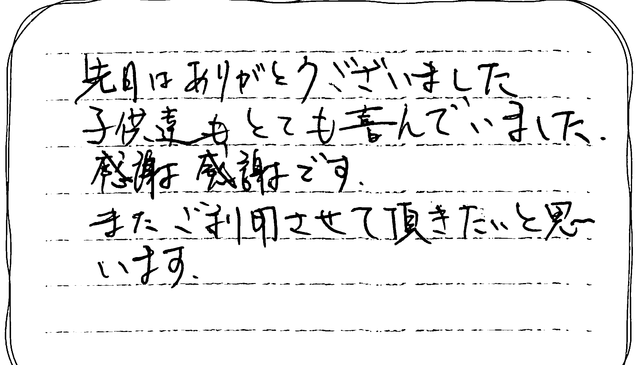 先日はありがとうございました
子供達もとても喜んでいました.
感謝は感謝はです.
またご利用させて頂きたいと思〜
います.